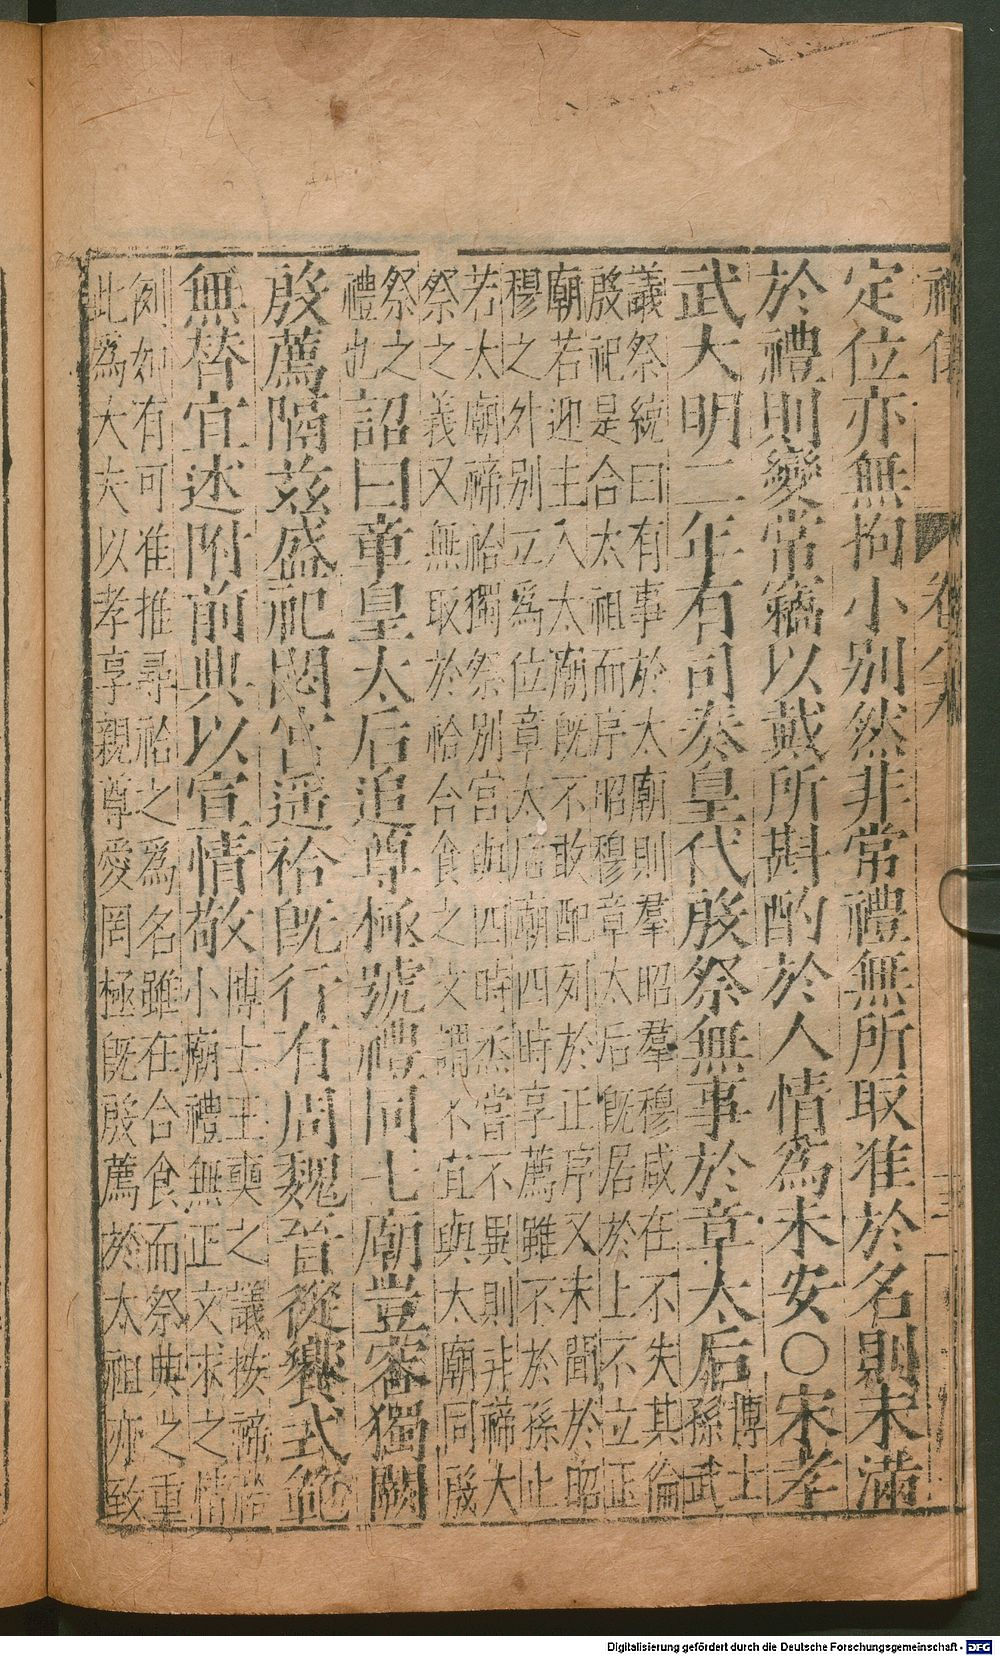 卷八
定位亦無拘小别然非常禮無所取准於名則未滿
於禮則變常竊以戴所斟酌於人情為未安○宋孝
武大明二年有司奏皇代殷祭無事於章太后博士
孫武
議祭統曰有事於太廟則羣昭羣穆咸在不失其倫
殷祀是合太祖而序昭穆章太后既居於上不立正
廟若迎主入太廟既不敢配列於正序又未聞於昭
穆之外别立為位章太后廟四時享薦雖不於孫止
若太廟禘祫獨祭别宮與四時烝嘗不異則非禘大
祭之義又無取於祫合食之文謂不宜與太廟同殷
祭之
禮也詔曰章皇太后追尊極號禮同七廟豈容獨闕
殷薦隔茲盛祀閟宮遥祫既行有周魏晉從饗式範
無替宜述附前典以宣情敬博士王奭之議按禘祫
小廟禮無正文求之情
例如有可准推尋祫之為名雖在合食而祭典之重
此為大夫以孝享親尊愛罔極既殷薦於太祖亦致
Digitalisierung gefördert durch die Deutsche Forschungsgemeinschaft - DFG